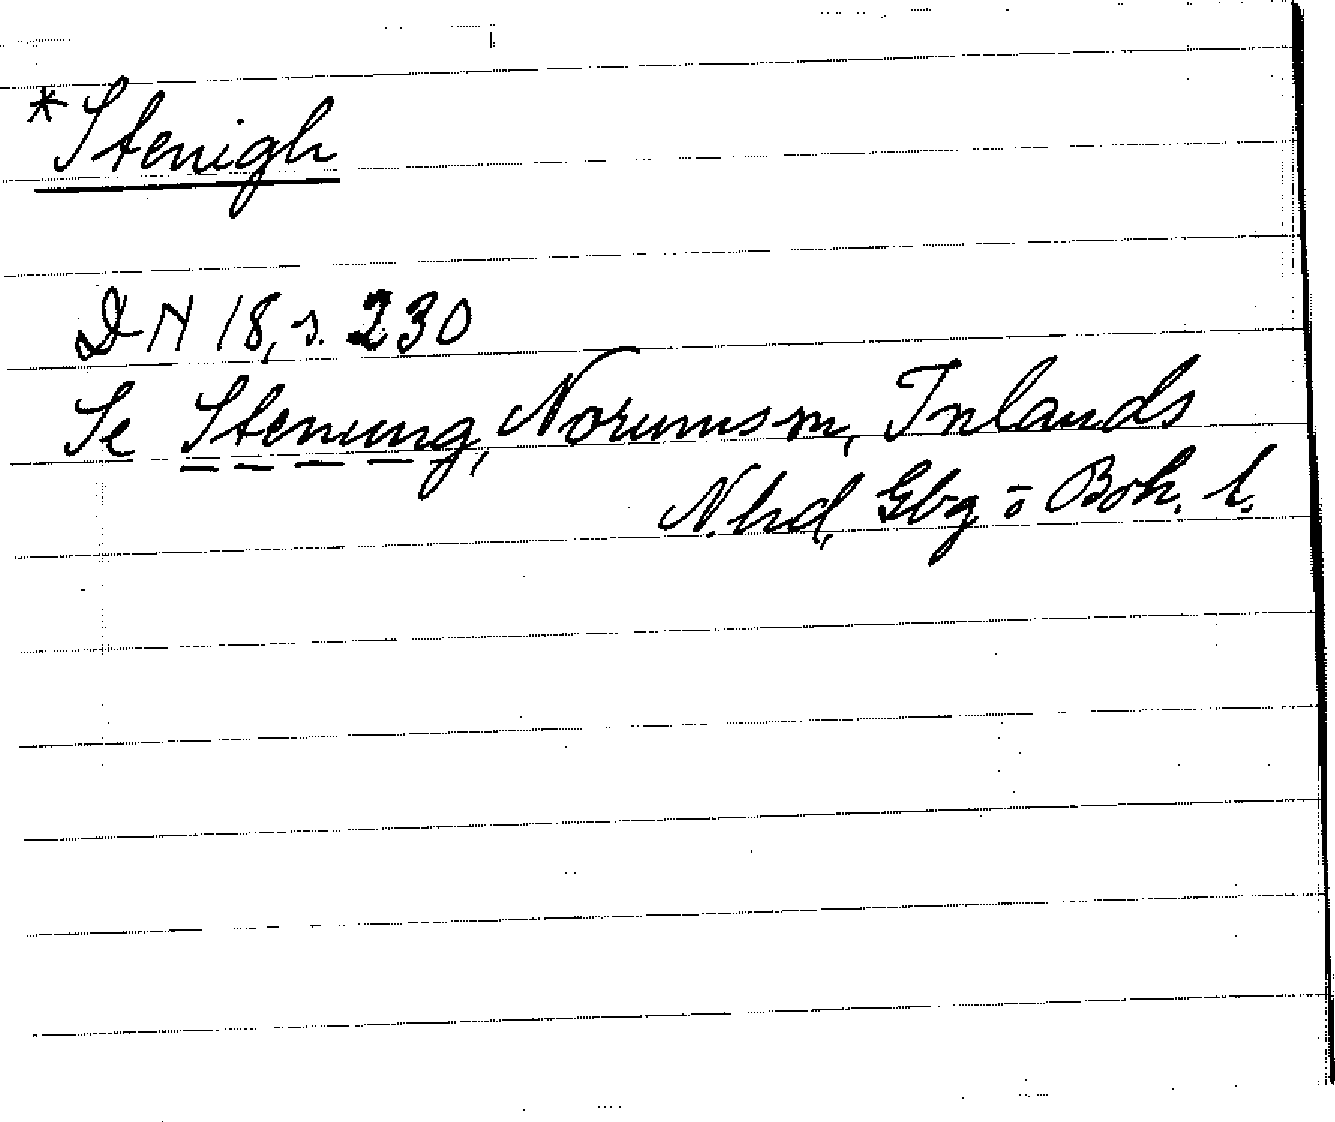 *Stenigh
DN 18, s. 230
Se Stenung, Norums sn, Inlands
N. hd, Gbg o Boh. l.